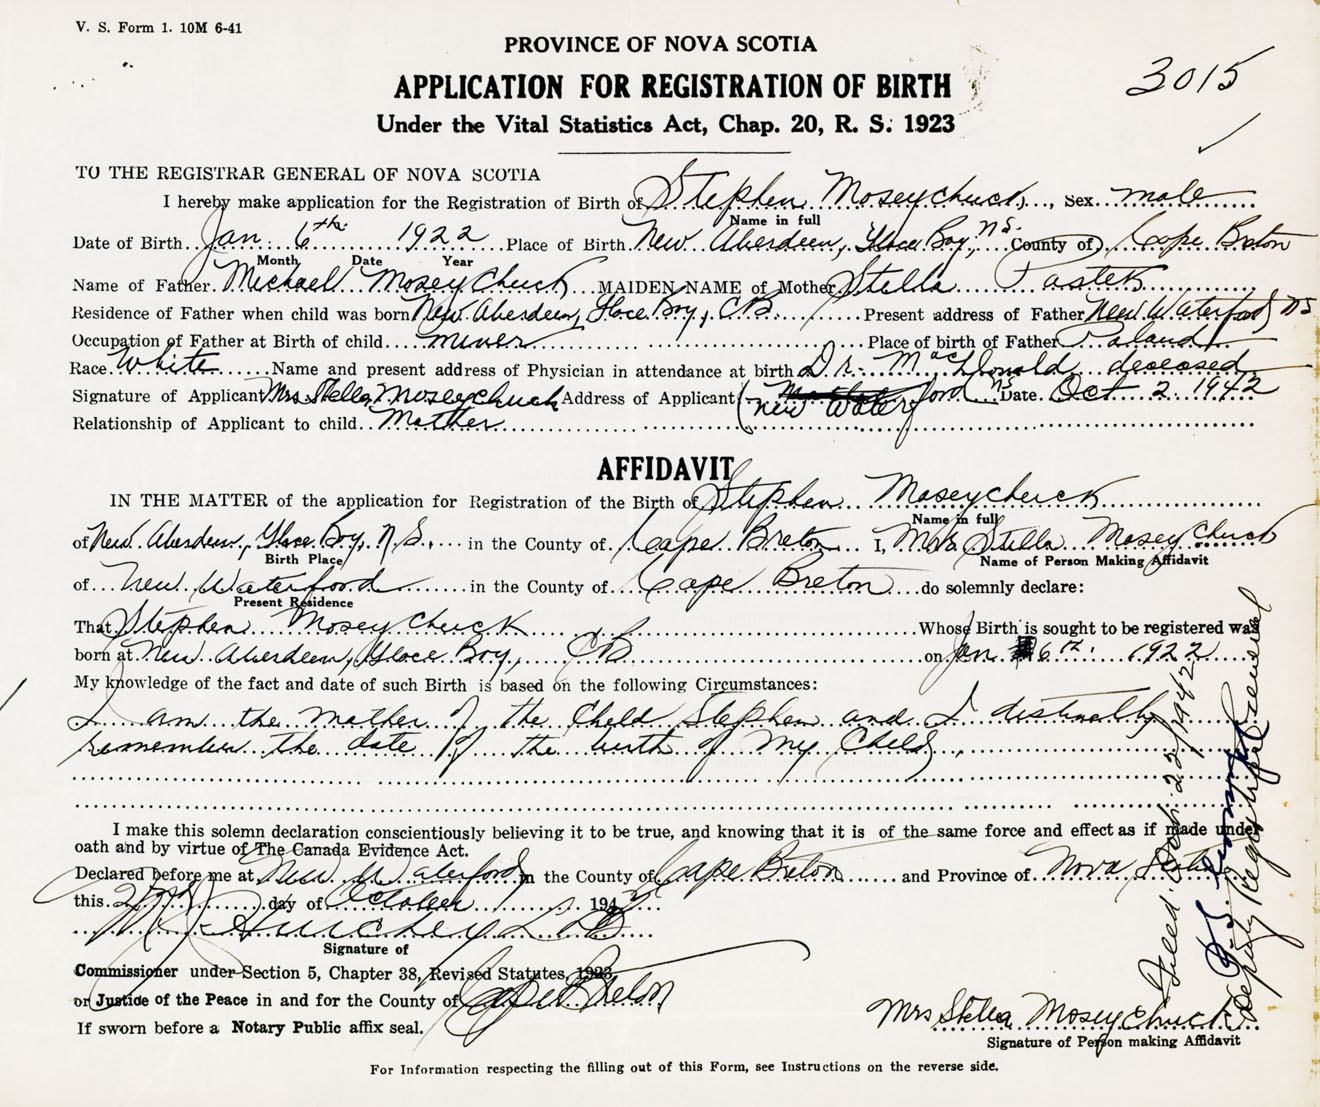 V. S. Form 1. 10M 6-41
PROVINCE OF NOVA SCOTIA
3015
APPLICATION FOR REGISTRATION OF BIRTH
Under the Vital Statistics Act, Chap. 20, R. S. 1923
TO THE REGISTRAR GENERAL OF NOVA SCOTIA
I hereby make application for the Registration of Birth of Stephen Moseychuck, Sex male
Name in full
Date of Birth Jan. 6th 1922 Place of Birth New Aberdeen, Glace Bay, N.S. County of Cape Breton
Month Date Year
Name of Father Michael Moseychuck MAIDEN NAME of Mother Stella Pastek
Residence of Father when child was born New Aberdeen, Glace Bay, C.B. Present address of Father New Waterford NS
Occupation of Father at Birth of child miner Place of birth of Father Poland
Race White Name and present address of Physician in attendance at birth Dr. MacDonald deceased
Signature of Applicant Mrs Stella Moseychuck Address of Applicant (New Waterford NS Date Oct 2 1942
Relationship of Applicant to child Mother
AFFIDAVIT
IN THE MATTER of the application for Registration of the Birth of Stephen Moseychuck
Name in full
of New Aberdeen, Glace Bay, N.S. in the County of Cape Breton I, Mrs Stella Moseychuck
Birth Place Name of Person Making Affidavit
of New Waterford in the County of Cape Breton do solemnly declare:
Present Residence
That Stephen Moseychuck Whose Birth is sought to be registered was
born at New Aberdeen, Glace Bay, CB on Jan 6th 1922
My knowledge of the fact and date of such Birth is based on the following Circumstances:
I am the mother of the Child Stephen and I distinctly
remember the date of the birth of my Child.
I make this solemn declaration conscientiously believing it to be true, and knowing that it is of the same force and effect as if made under
oath and by virtue of The Canada Evidence Act.
Declared before me at New Waterford in the County of Cape Breton and Province of Nova Scotia
this 2nd day of October 1942
Signature of
Commissioner under Section 5, Chapter 38, Revised Statutes, 1923
or Justice of the Peace in and for the County of Cape Breton
If sworn before a Notary Public affix seal.
Mrs Stella Moseychuck
Signature of Person making Affidavit
For Information respecting the filling out of this Form, see Instructions on the reverse side.
Filed 22/1942
Deputy Registrar General